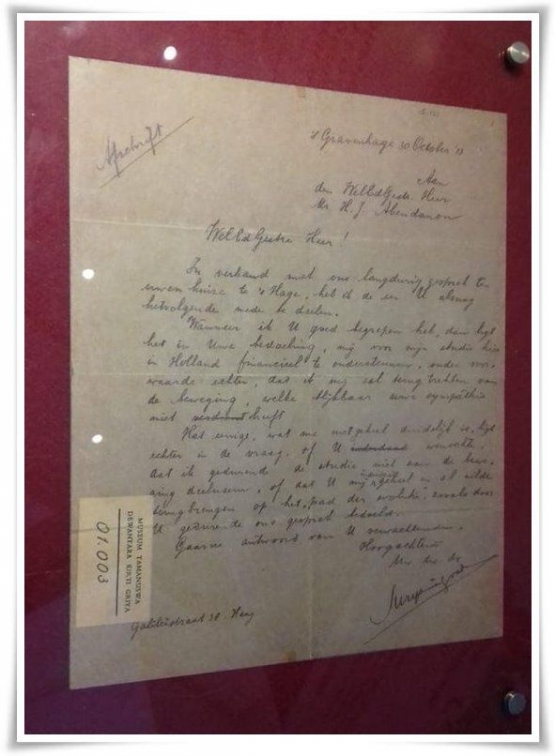 Afschrift
's Gravenhage 30 October '13
Aan
den WelEdGestr. Heer
Mr. H. J. Abendanon
WelEdGestr. Heer!
In verband met ons langdurig gesprek ten
uwen huize te 's Hage, heb ik de eer U
het volgende mede te deelen.
Wanneer ik U goed begrepen heb, dan ligt
het in Uwe bedoeling, mij voor mijn studie hier
in Holland financieel te ondersteunen, onder voor-
waarde echter, dat ik mij zal terugtrekken van
de beweging, welke blijkbaar uwe sympathie
niet heeft
Het eenige, wat me niet geheel duidelijk is, ligt
echter in de vraag, of U wenschte
dat ik gedurende de studie niet aan de bewe-
ging deelneme, of dat U mij geheel en al wilde
terugbrengen op het "pad der
U gedurende ons gesprek bedoelde.
Gaarne antwoord van U verwachtende,
Hoogachtend
Uw dw. dr.
Galileistraat 38 Haag
MUSEUM TAMANSISWA
DEWANTARA KIRTI GRIYA
01.003